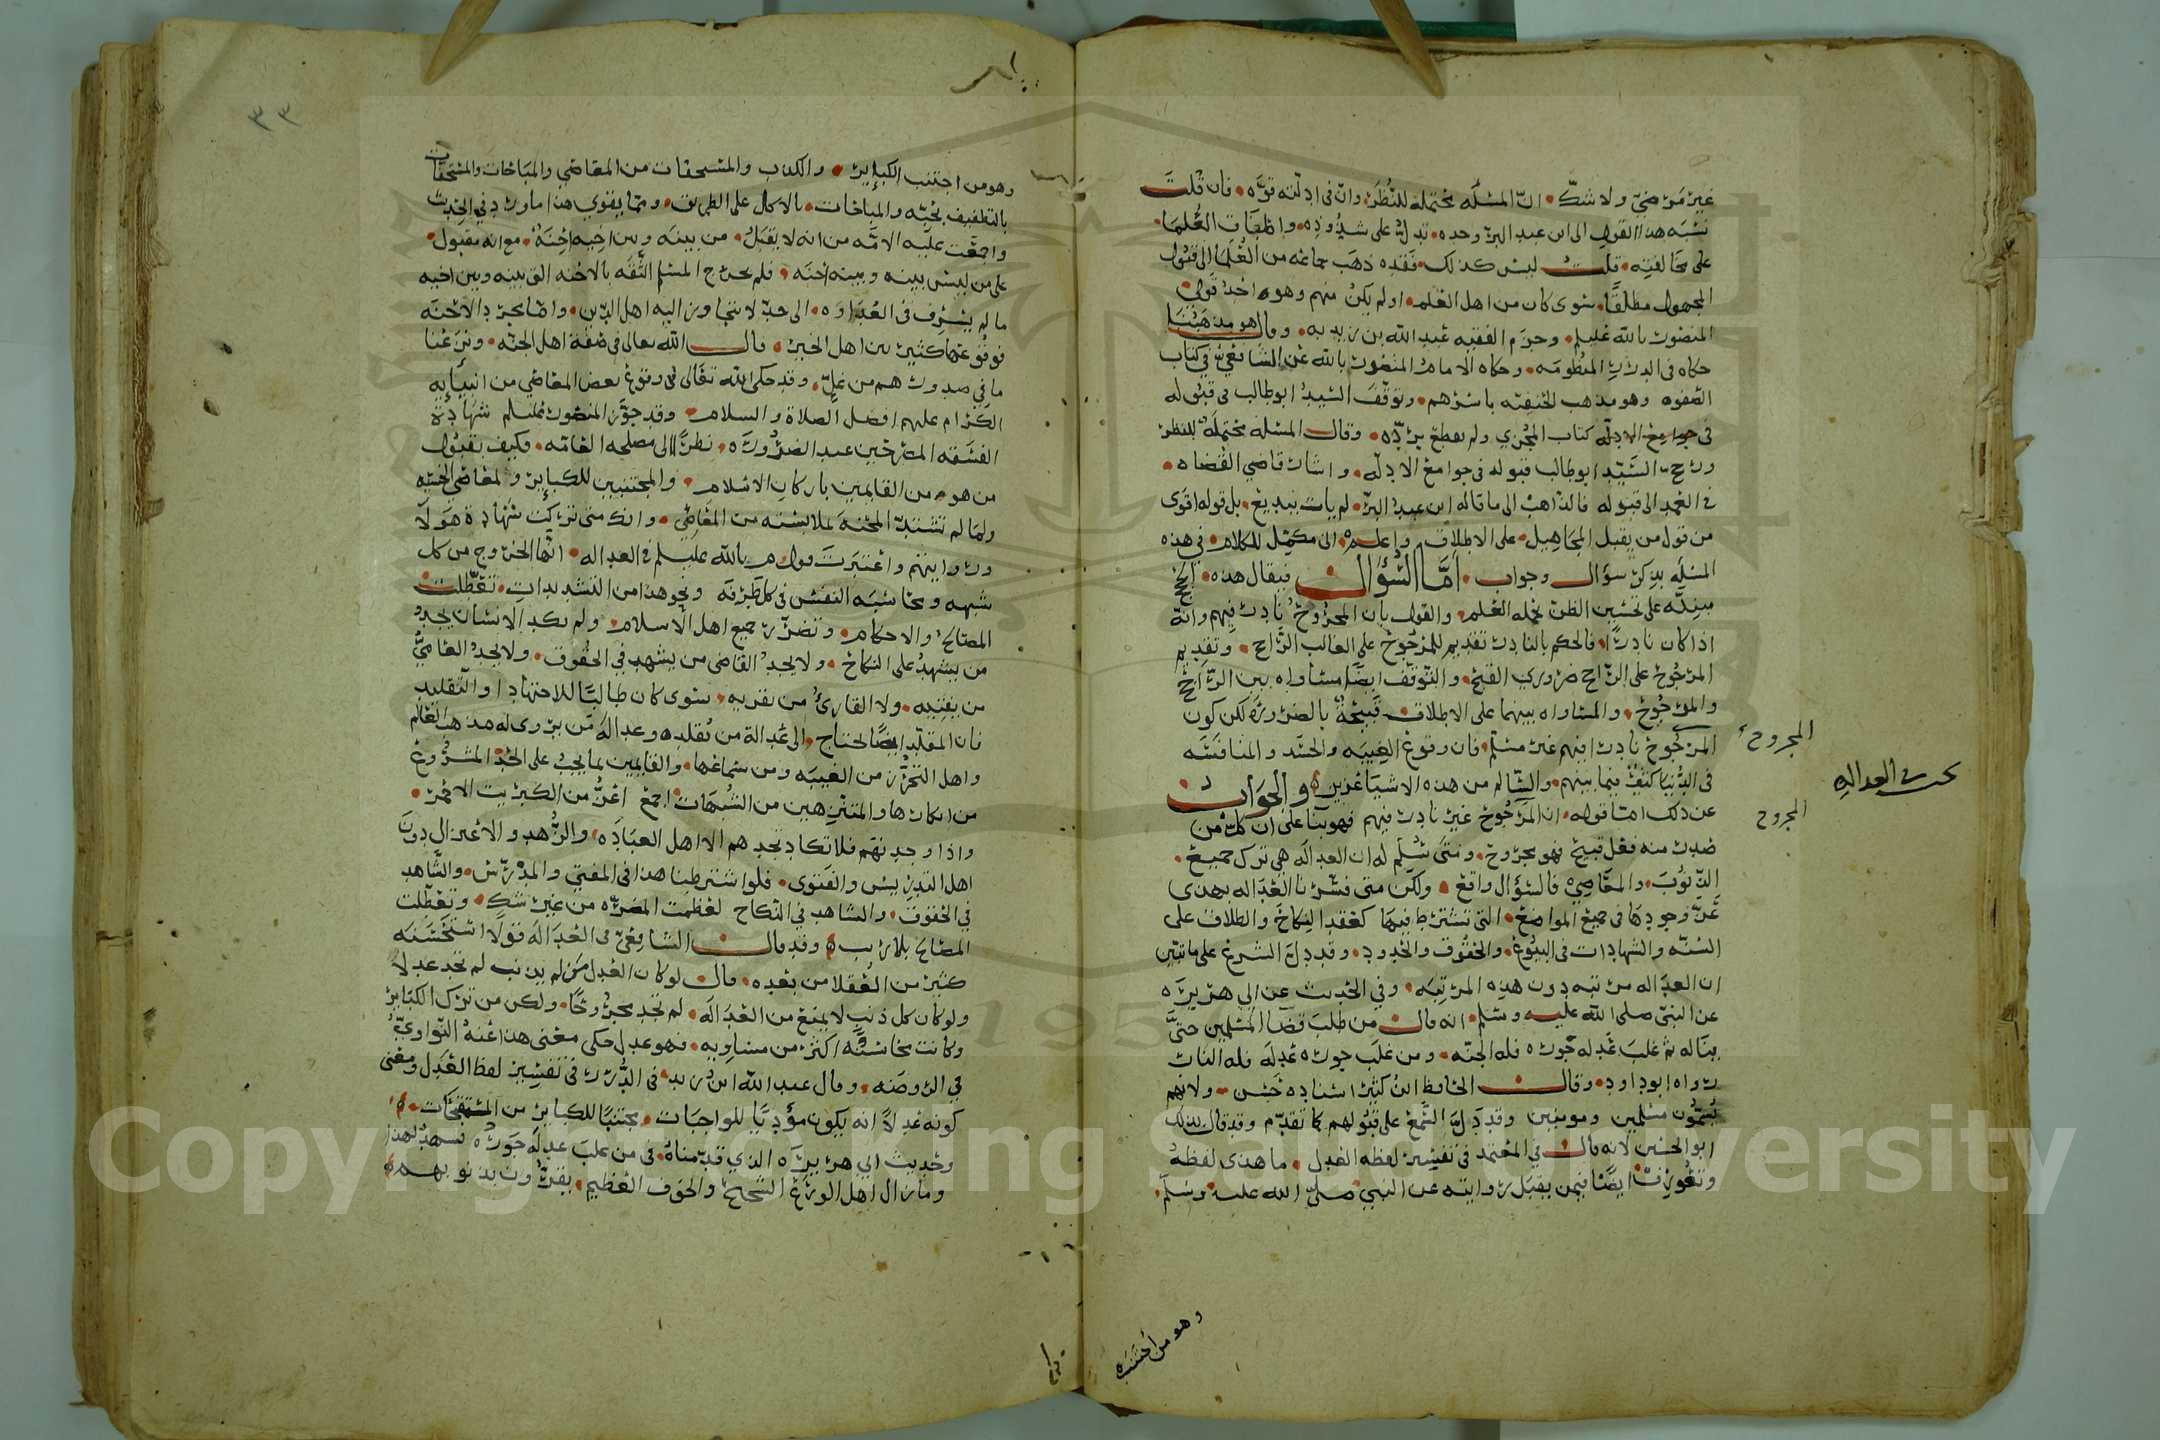 غير مرضي ولا شك ان المسئله محتملة للنظر وان في ادلته قوه فان قلت
نسبه هذا القول الى ابن عبد البر وحده تدل على شذوذه واطباق العلما
على مخالفته قلت ليس كذلك فقد ذهب جماعه من العلما الى قبول
المجهول مطلقا سوى كان من اهل العلم او لم يكن منهم وهو احد قولي
المنصور بالله عليلم وجزم الفقيه عبد الله بن زيد به وقال هو مذهبنا
حكاه في الدرر المنظومه وحكاه الامام المنصور بالله عن الشافعي في كتاب
الصفوه وهو مذهب الحنفيه باسرهم وتوقف السيد ابو طالب في قبوله
في جوامع الادله كتاب المجزي ولم يقطع برده وقال المسئله محتملة للنظر
ورجح السيد ابو طالب قبوله في جوامع الادله واشار قاضي القضاه
في العمد الى قبوله فالذاهب الى ما قاله ابن عبد البر لم يات ببديع بل قوله اقوى
من قول من يقبل المجاهيل على الاطلاق واعلم اني مكمل للكلام في هذه
المسئله بذكر سؤال وجواب اما السؤال فيقال هذه الحجج
مبنيه على تحسين الظن بحمله العلم والقول بان المجروح نادر فيهم وانه
اذا كان نادرا فالحكم بالنادر تقديم للمرجوح على الغالب الراجح وتقديم
المرجوح على الراجح ضروري القبح والتوقف ايضا مساواه بين الراجح
والمرجوح والمساواه بينهما على الاطلاق قبيحة بالضروره لكن كون
المرجوح نادرا فيهم غير مسلم فان وقوع الغيبه والحسد والمنافسه
في الدنيا كثير فيما بينهم والسالم من هذه الاشيا عزيز والجواب
عن ذلك اما قوله ان المرجوح غير نادر فيهم فهو بنا على ان كل من
صدر منه فعل قبيح فهو مجروح ومتى سلم له ان العداله هي ترك جميع
الذنوب والمعاصي فالسؤال واقع ولكن متى فسرنا العداله بهذى
عز وجودها في جميع المواضع التي تشترط فيها كعقد النكاح والطلاق على
السنه والشهادات في البيوع والحقوق والحدود وقد دل الشرع على ما تبين
ان العداله مرتبه دون هذه المرتبه وفي الحديث عن ابي هريره
عن النبي صلى الله عليه وسلم انه قال من طلب قضا المسلمين حتى
يناله ثم غلب عدله جوره فله الجنه ومن غلب جوره عدله فله النار
رواه ابو داود وقال الحافظ ابن كثير اسناده حسن ولانهم
يسمون مسلمين ومومنين وقد دل السمع على قبولهم كما تقدم وقد قال بذلك
ابو الحسين لانه قال في المعتمد في تفسير لفظه العدل ما هذى لفظه
وتعورف ايضا فيمن يقبل روايته عن النبي صلى الله عليه وسلم
المجروح
بحث العداله
المجروح
وهو من اجتنب
٣٣
وهو من اجتنب الكباير والكذب والمستخفات من المعاصي والمباحات والمستخفات
بالتطفيف بحبه والمباحات بالاكل على الطريق ومما يقوي هذا ما ورد في الحديث
واجمعت عليه الامه من انه لا يقبل من بينه وبين اخيه إحنة مع انه مقبول
على من ليس بينه وبينه احنه فلم يجرح المسلم الثقه بالاحنه التي بينه وبين اخيه
ما لم يسرف في العداوه الى حد لا يتجاوز اليه اهل الدين وانما بمجرد الاحنه
فوقوعها كثير بين اهل الخير قال الله تعالى في صفة اهل الجنه ونزعنا
ما في صدورهم من غل وقد حكى الله تعالى في وقوع بعض المعاصي من انبيايه
الكرام عليهم افضل الصلاة والسلام وقد جوز المنصور عليلم شهادة
الفسقه المصرحين عند الضروره نظرا الى مصلحه العامه فكيف بقبول
من هو من القايمين باركان الاسلام والمجتنبين للكباير ولمعاصي الخسه
ولما لم تشتد المحنه بملابسته من المعاصي وانك متى تركت شهادة هولا
وروايتهم واعتبرت قول م بالله عليلم في العداله انها الخروج من كل
شبهه ومحاسبه النفس في كل طرفه ونحو هذا من التشديدات تعطلت
المصالح والاحكام وتضرر جميع اهل الاسلام ولم يكد الانسان يجد
من يشهد على النكاح ولا يجد القاضي من يشهد في الحقوق ولا يجد العامي
من يفتيه ولا القارئ من يقريه سوى كان طالبا للاجتهاد او التقليد
فان المقلد ايضا يحتاج الى عدالة من يقلده وعدالة من يروى له مذهب العالم
واهل التحرز من الغيبه ومن سماعها والقايمين بما يجب على الحد المشروع
من انكارها والمتنزهين من الشبهات اجمع اعز من الكبريت الاحمر
واذا وجدتهم فلا تكاد تجدهم الا اهل العباده والزهد والاعتزال دون
اهل التدريس والفتوى فلو اشترطنا هذا في المفتي والمدرس والشاهد
في الحقوق والشاهد في النكاح لعظمت المضره من غير شك وتعطلت
المصالح بلا ريب وقد قال الشافعي في العداله قولا استحسنه
كثير من العقلا من بعده قال لو كان العدل من لم يذنب لم تجد عدلا
ولو كان كل ذنب لا يمنع من العداله لم تجد مجروحا ولكن من ترك الكباير
وكانت محاسنه اكثر من مساويه فهو عدل حكى معنى هذا عنه النواوي
في الروضه وقال عبد الله ابن زيد في الدرر في تفسير لفظ العدل ومعنى
كونه عدلا انه يكون مؤديا للواجبات مجتنبا للكباير من المستقبحات
وحديث ابي هريره الذي قدمناه في من غلب عدله جوره يشهد لهذا
وما زال اهل الورع الشحيح والخوف العظيم يقرون بذنوبهم